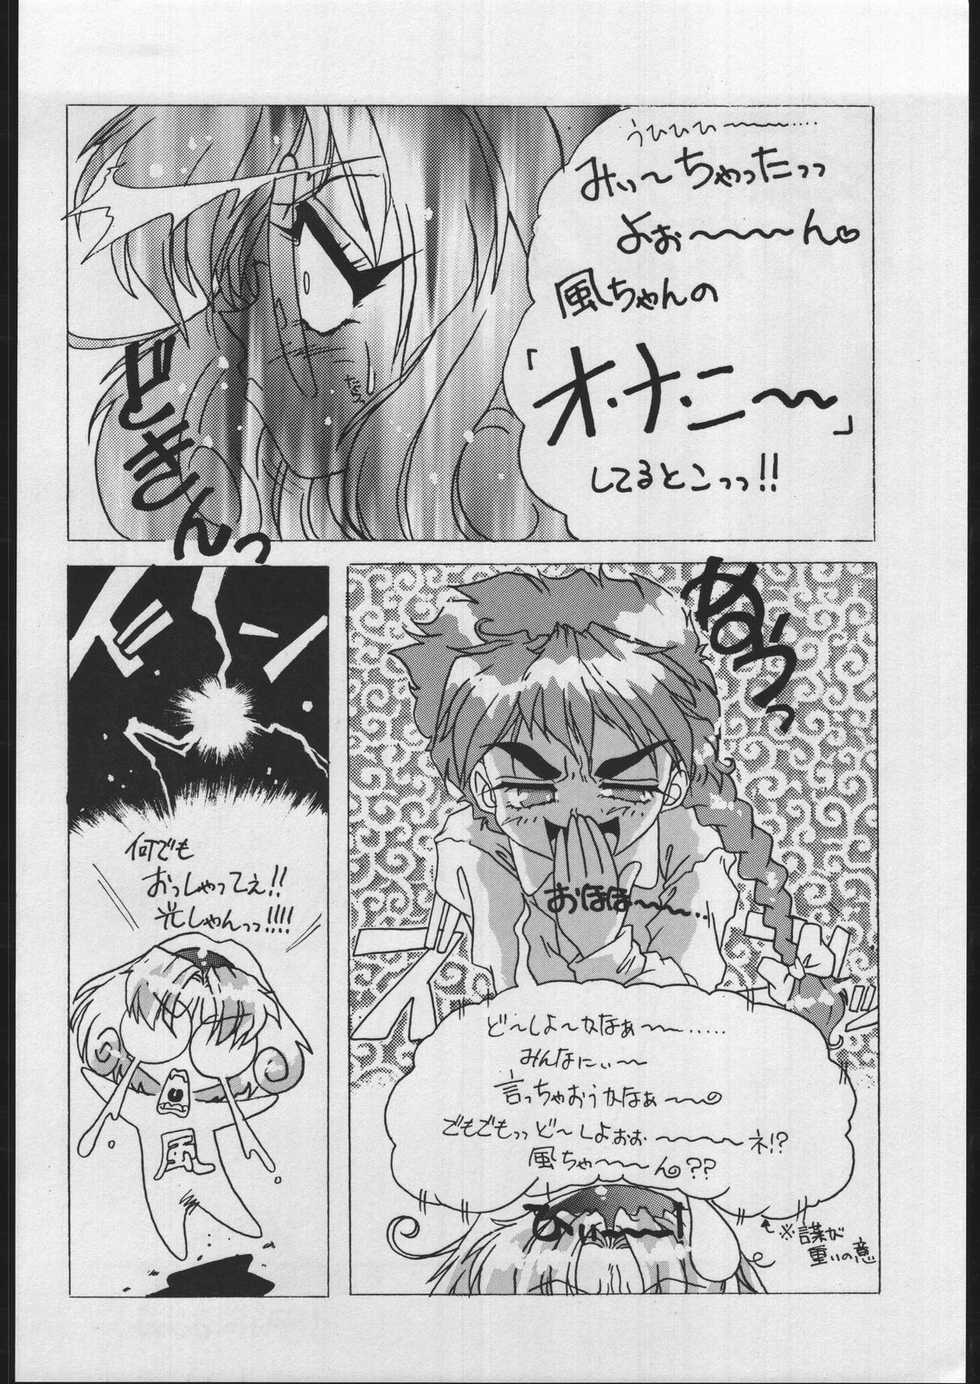 うひひひ〜〜〜‥‥
みぃ〜ちゃったっっ
よぉ〜〜〜〜ん♡
風ちゃんの
「オ・ナ・ニ〜〜」
してるとこっっ!!
たらっ
どきんっ
ぬうっ
おほほ〜〜〜‥
ど〜しよ〜かなぁ〜〜‥‥‥
みんなにぃ〜
言っちゃおうかなぁ〜〜
でもでもっっど〜しよぉぉ〜〜〜〜ネ!?
風ちゃ〜〜〜ん??
ひぃ〜〜〜!
重いの意
ガーン
何でも
おっしゃってぇ!!
光しゃんっっ!!!!
風